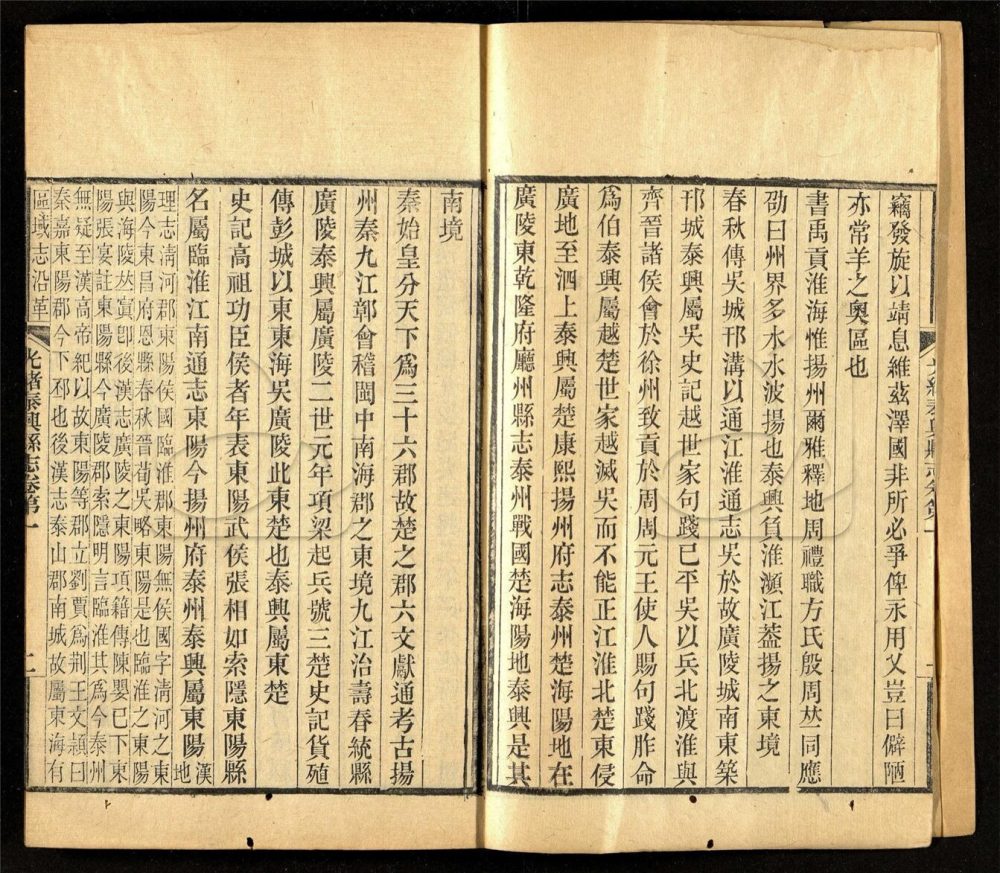 竊發旋以靖息維茲澤國非所必爭俾永用乂豈曰僻陋
亦常羊之奧區也
書禹貢淮海惟揚州爾雅釋地周禮職方氏殷周𠀤同應
劭曰州界多水水波揚也泰興負淮瀕江蓋揚之東境
春秋傳吳城邗溝以通江淮通志吳於故廣陵城南東築
邗城泰興屬吳史記越世家句踐已平吳以兵北渡淮與
齊晉諸侯會於徐州致貢於周周元王使人賜句踐胙命
爲伯泰興屬越楚世家越滅吳而不能正江淮北楚東侵
廣地至泗上泰興屬楚康熙揚州府志泰州楚海陽地在
廣陵東乾隆府廳州縣志泰州戰國楚海陽地泰興是其
南境
秦始皇分天下爲三十六郡故楚之郡六文獻通考古揚
州秦九江鄣會稽閩中南海郡之東境九江治壽春統縣
廣陵泰興屬廣陵二世元年項梁起兵號三楚史記貨殖
傳彭城以東東海吳廣陵此東楚也泰興屬東楚
史記高祖功臣侯者年表東陽武侯張相如索隱東陽縣
名屬臨淮江南通志東陽今揚州府泰州泰興屬東陽漢地
理志淸河郡東陽侯國臨淮郡東陽無侯國字淸河之東
陽今東昌府恩縣春秋晉荀吳略東陽是也臨淮之東陽
與海陵𠀤寘卽後漢志廣陵之東陽項籍傳陳嬰已下東
陽張宴註東陽縣今廣陵郡索隱明言臨淮其爲今泰州
無疑至漢高帝紀以故東陽等郡立劉賈爲荆王文穎曰
秦嘉東陽郡今下邳也後漢志泰山郡南城故屬東海有
區域志沿革
光緒泰興縣志卷第一
二